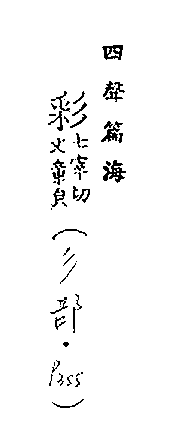 四聲篇海
彩七宰切文章皃（彡部．P355）